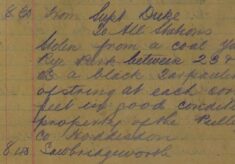 8.30 From Supt Duke
To All Stations
Stolen from a coal
Rye Park between 23 &
a black Tarpaulin
of string at each
feet in good condi
property of the
Co Hoddesdon
8.45 Sawbridgeworth